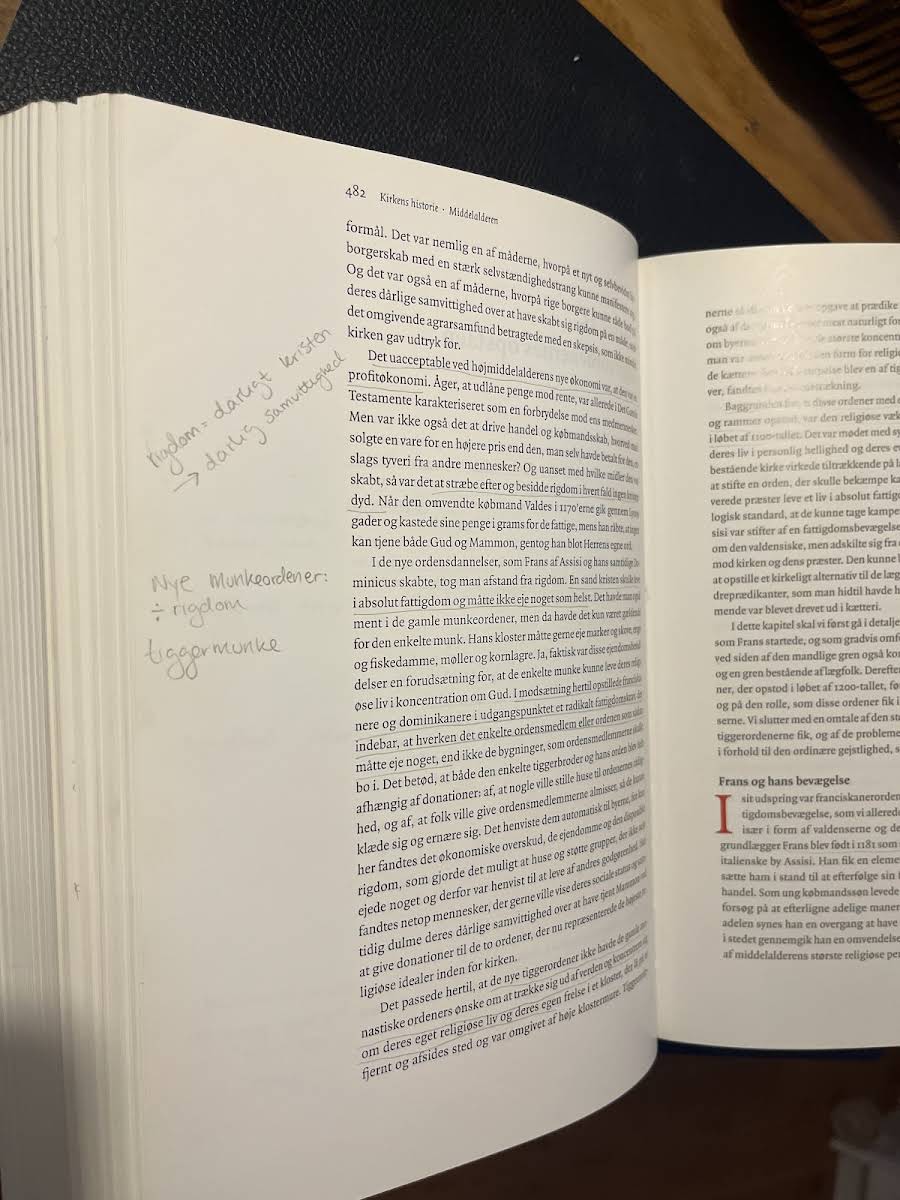 482 Kirkens historie · Middelalderen
formål. Det var nemlig en af måderne, hvorpå et nyt og selvbevidst
borgerskab med en stærk selvstændighedstrang kunne manifestere sig.
Og det var også en af måderne, hvorpå rige borgere kunne råde bod på
deres dårlige samvittighed over at have skabt sig rigdom på en måde, som
det omgivende agrarsamfund betragtede med en skepsis, som ikke mindst
kirken gav udtryk for.
Det uacceptable ved højmiddelalderens nye økonomi var, at den var en
profitøkonomi. Åger, at udlåne penge mod rente, var allerede i Det Gamle
Testamente karakteriseret som en forbrydelse mod ens medmennesker.
Men var ikke også det at drive handel og købmandsskab, hvorved man
solgte en vare for en højere pris end den, man selv havde betalt for den, en
slags tyveri fra andre mennesker? Og uanset med hvilke midler den var
skabt, så var det at stræbe efter og besidde rigdom i hvert fald ingen kristen
dyd. Når den omvendte købmand Valdes i 1170'erne gik gennem Lyons
gader og kastede sine penge i grams for de fattige, mens han råbte, at ingen
kan tjene både Gud og Mammon, gentog han blot Herrens egne ord.
I de nye ordensdannelser, som Frans af Assisi og hans samtidige Do-
minicus skabte, tog man afstand fra rigdom. En sand kristen skulle leve
i absolut fattigdom og måtte ikke eje noget som helst. Det havde man også
ment i de gamle munkeordener, men da havde det kun været gældende
for den enkelte munk. Hans kloster måtte gerne eje marker og skove, enge
og fiskedamme, møller og kornlagre. Ja, faktisk var disse ejendomsbesid-
delser en forudsætning for, at de enkelte munke kunne leve deres religi-
øse liv i koncentration om Gud. I modsætning hertil opstillede franciska-
nere og dominikanere i udgangspunktet et radikalt fattigdomskrav, der
indebar, at hverken det enkelte ordensmedlem eller ordenen som sådan
måtte eje noget, end ikke de bygninger, som ordensmedlemmerne skulle
bo i. Det betød, at både den enkelte tiggerbroder og hans orden blev helt
afhængig af donationer: af, at nogle ville stille huse til ordenernes rådig-
hed, og af, at folk ville give ordensmedlemmerne almisser, så de kunne
klæde sig og ernære sig. Det henviste dem automatisk til byerne, for kun
her fandtes det økonomiske overskud, de ejendomme og den disponible
rigdom, som gjorde det muligt at huse og støtte grupper, der ikke selv
ejede noget og derfor var henvist til at leve af andres godgørenhed. Her
fandtes netop mennesker, der gerne ville vise deres sociale status og sam-
tidig dulme deres dårlige samvittighed over at have tjent Mammon ved
at give donationer til de to ordener, der nu repræsenterede de højeste re-
ligiøse idealer inden for kirken.
Det passede hertil, at de nye tiggerordener ikke havde de gamle mo-
nastiske ordeners ønske om at trække sig ud af verden og koncentrere sig
om deres eget religiøse liv og deres egen frelse i et kloster, der lå på et
fjernt og afsides sted og var omgivet af høje klostermure. Tiggermun-
rigdom = dårligt kristen
→ dårlig samvittighed
Nye munkeordener:
÷ rigdom
tiggermunke
nerne opgave at prædike
også af de mest naturligt for
om byerne største koncent
man var en form for religi
de kættere blev en af tig
ver, fandtes
Baggrunden for, at disse ordener med
og rammer opstod, var den religiøse væk
i løbet af 1100-tallet. Der var mødet med sy
deres liv i personlig hellighed og deres ev
bestående kirke virkede tiltrækkende på l
at stifte en orden, der skulle bekæmpe ka
verede præster leve et liv i absolut fattig
logisk standard, at de kunne tage kampe
sisi var stifter af en fattigdomsbevægelse
om den valdensiske, men adskilte sig fra
mod kirken og dens præster. Den kunne
at opstille et kirkeligt alternativ til de læg
dreprædikanter, som man hidtil havde h
mende var blevet drevet ud i kætteri.
I dette kapitel skal vi først gå i detalje
som Frans startede, og som gradvis omf
ved siden af den mandlige gren også ko
og en gren bestående af lægfolk. Derefter
ner, der opstod i løbet af 1200-tallet, fø
og på den rolle, som disse ordener fik i
serne. Vi slutter med en omtale af den st
tiggerordenerne fik, og af de probleme
i forhold til den ordinære gejstlighed, s
Frans og hans bevægelse
I sit udspring var franciskanerorden
tigdomsbevægelse, som vi allered
især i form af valdenserne og de
grundlægger Frans blev født i 1181 som
italienske by Assisi. Han fik en eleme
sætte ham i stand til at efterfølge sin
handel. Som ung købmandssøn levede
forsøg på at efterligne adelige maner
adelen synes han en overgang at have
i stedet gennemgik han en omvendelse
af middelalderens største religiøse per